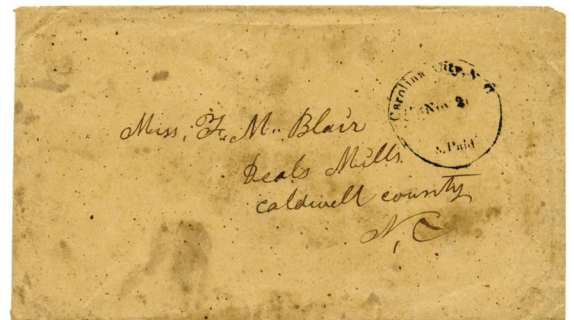 Carolina City, N.C
Nov 2
Paid
Miss, F. M. Blair
Deals Mills
Caldwell county
N, C